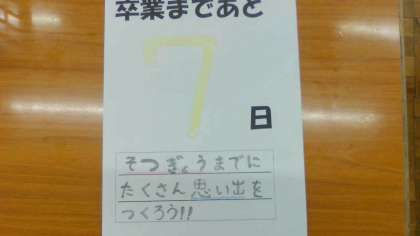 卒業まであと
7
日
そつぎょうまでに
たくさん思い出を
つくろう!!